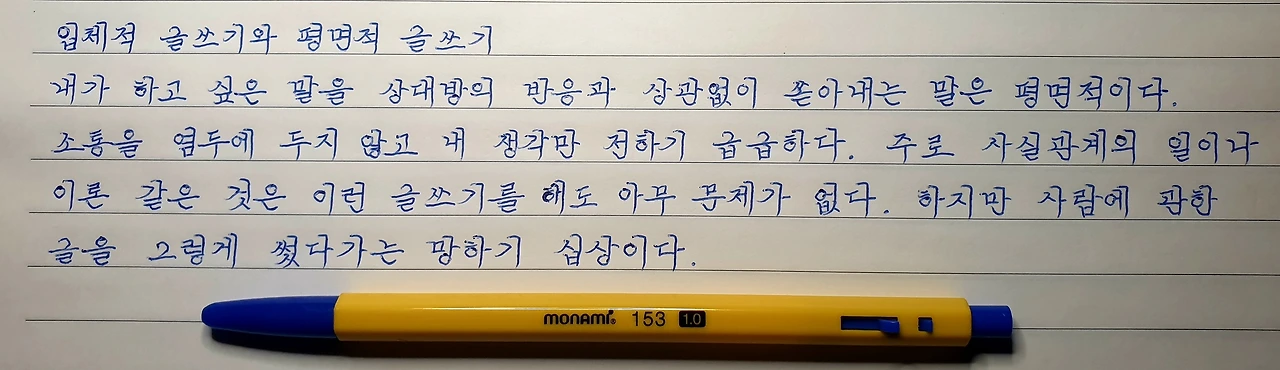 입체적 글쓰기와 평면적 글쓰기
내가 하고 싶은 말을 상대방의 반응과 상관없이 쏟아내는 말은 평면적이다.
소통을 염두에 두지 않고 내 생각만 전하기 급급하다. 주로 사실관계의 일이나
이론 같은 것은 이런 글쓰기를 해도 아무 문제가 없다. 하지만 사람에 관한
글을 그렇게 썼다가는 망하기 십상이다.
monami® 153 1.0